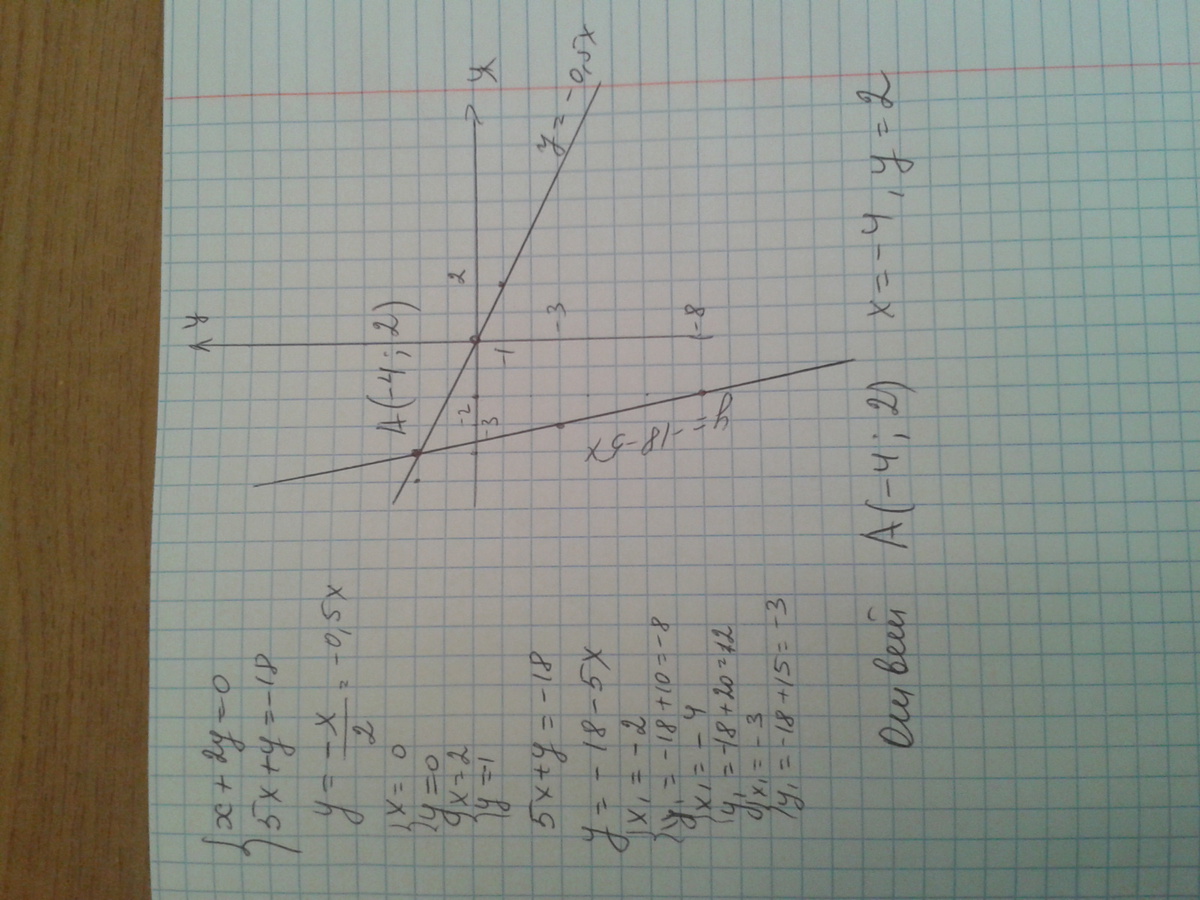 x + 2y = 0
5x + y = -18
y = -x/2 = -0,5x
x = 0
y = 0
x = 2
y = -1
5x + y = -18
y = -18 - 5x
x₁ = -2
y₁ = -18 + 10 = -8
x₁ = -4
y₁ = -18 + 20 = 2
x₁ = -3
y₁ = -18 + 15 = -3
y
A(-4; 2)
2
-2
-3
-1
-3
-8
y = -0,5x
y = -18 - 5x
Ответ A(-4; 2) x = -4, y = 2